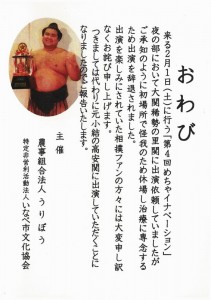 おわび
来る2月11日(土)に行う第4回めちゃイナベーション」
夜の部において大関稀勢の里関に出演依頼していましたが
ご承知のように初場所で怪我のため休場し治療に専念する
ため出演を辞退されました。
出演を楽しみにされていた相撲ファンの方々には大変申し訳
なくお詫び申し上げます。
つきましては代わりに元小結の高安関に出演していただくことに
なりましたのでご報告いたします。
主催
農事組合法人うりぼう
特定非営利活動法人いなべ市文化協会